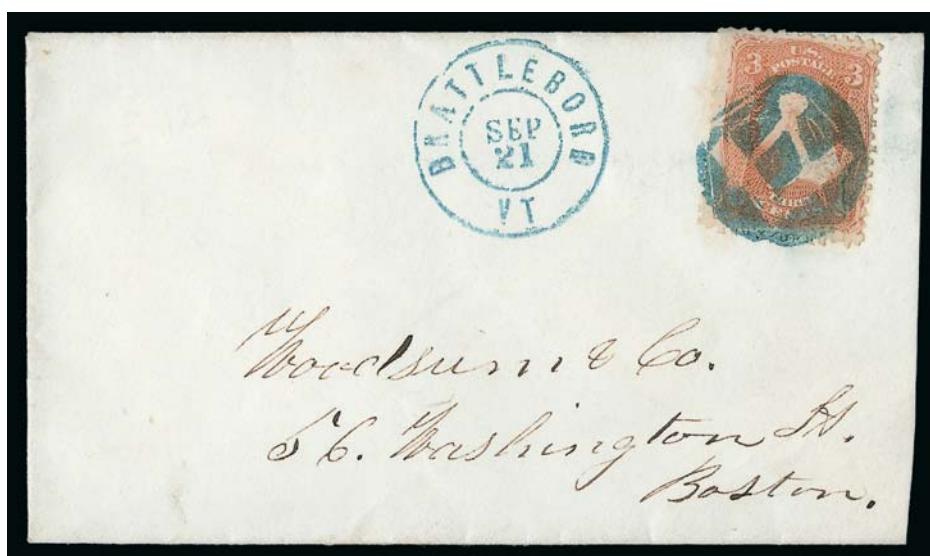 BRATTLEBORO
SEP
21
VT
U.S.
POSTAGE
3 3
Woodsum & Co.
56. Washington St.
Boston.